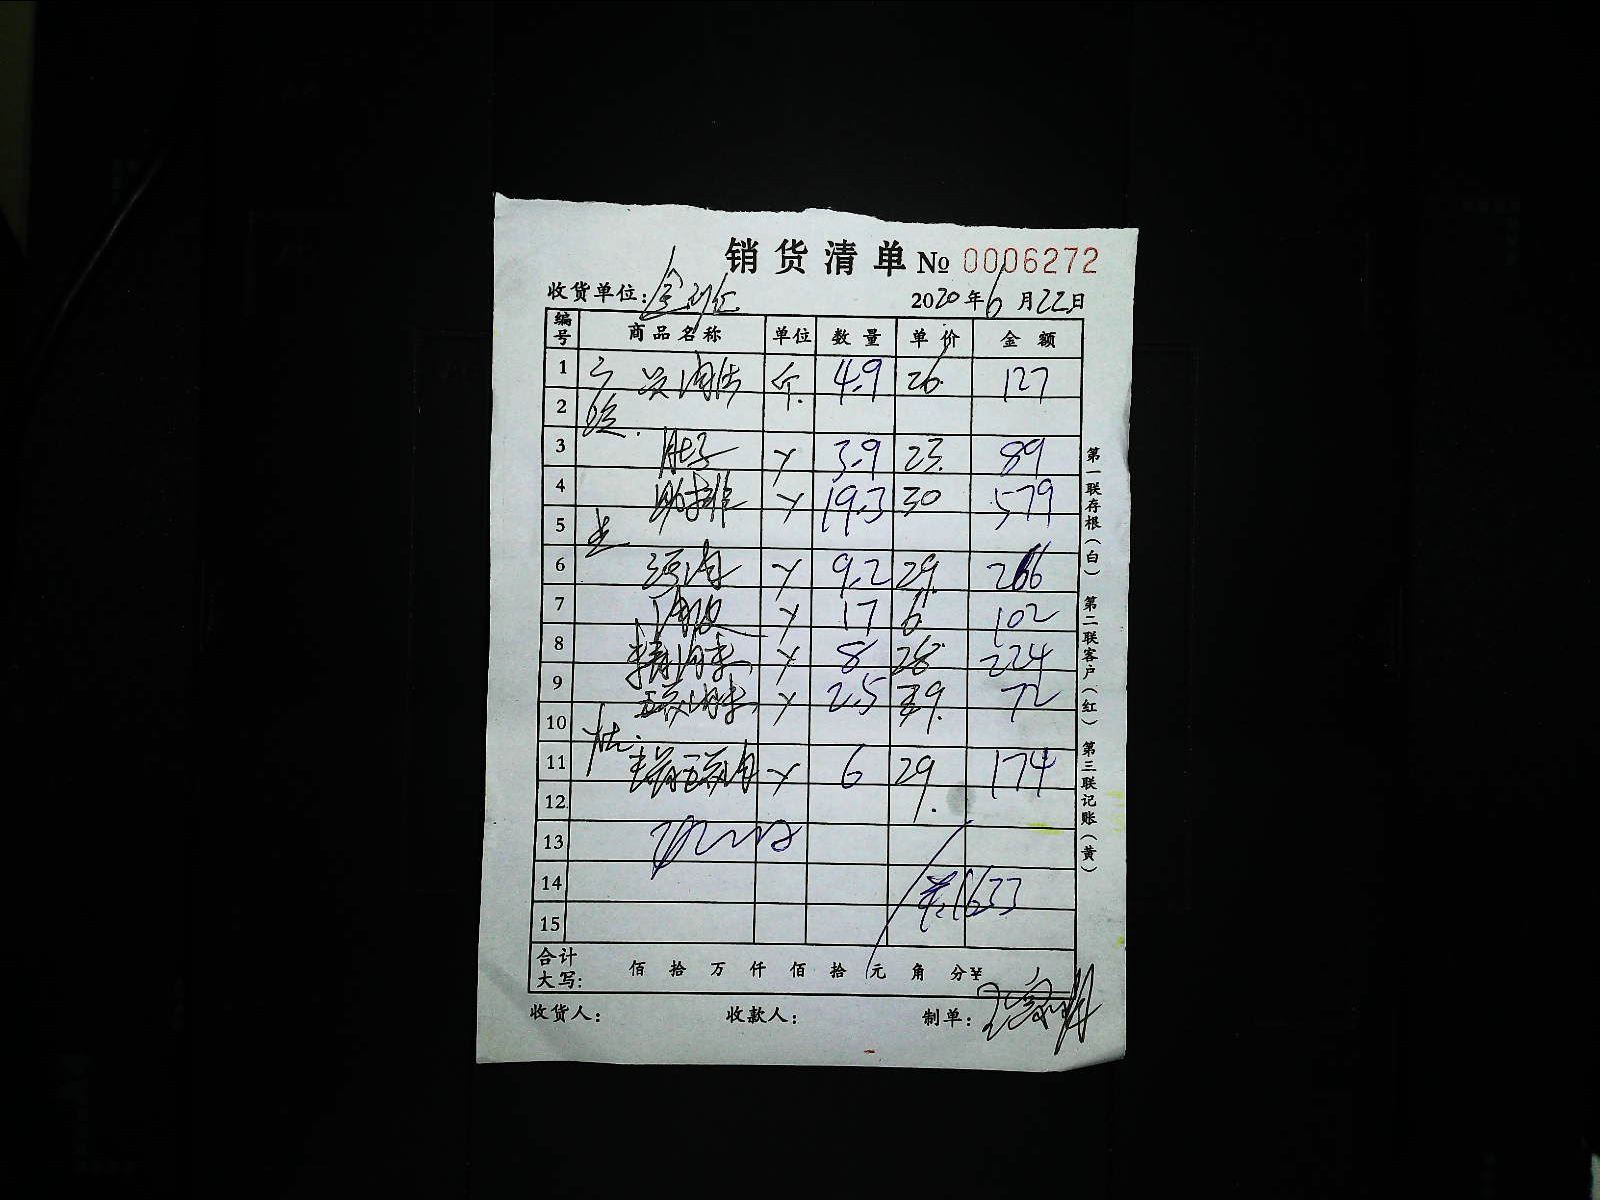 销货清单 № 0006272
收货单位: 2020年6月22日
编号 商品名称 单位 数量 单价 金额
1 4.9 26 127
2
3 肚子 3.9 23 89
4 助排 19.3 30 579
5
6 9.2 29 266
7 肉皮 17 6 102
8 精肉末 8 28 224
9 五花肉末 2.5 29 72
10
11 五花肉 6 29 174
12
13
14 共1633
15
合计
大写: 佰 拾 万 仟 佰 拾 元 角 分¥
收货人: 收款人: 制单:
第一联存根(白) 第二联客户(红) 第三联记账(黄)